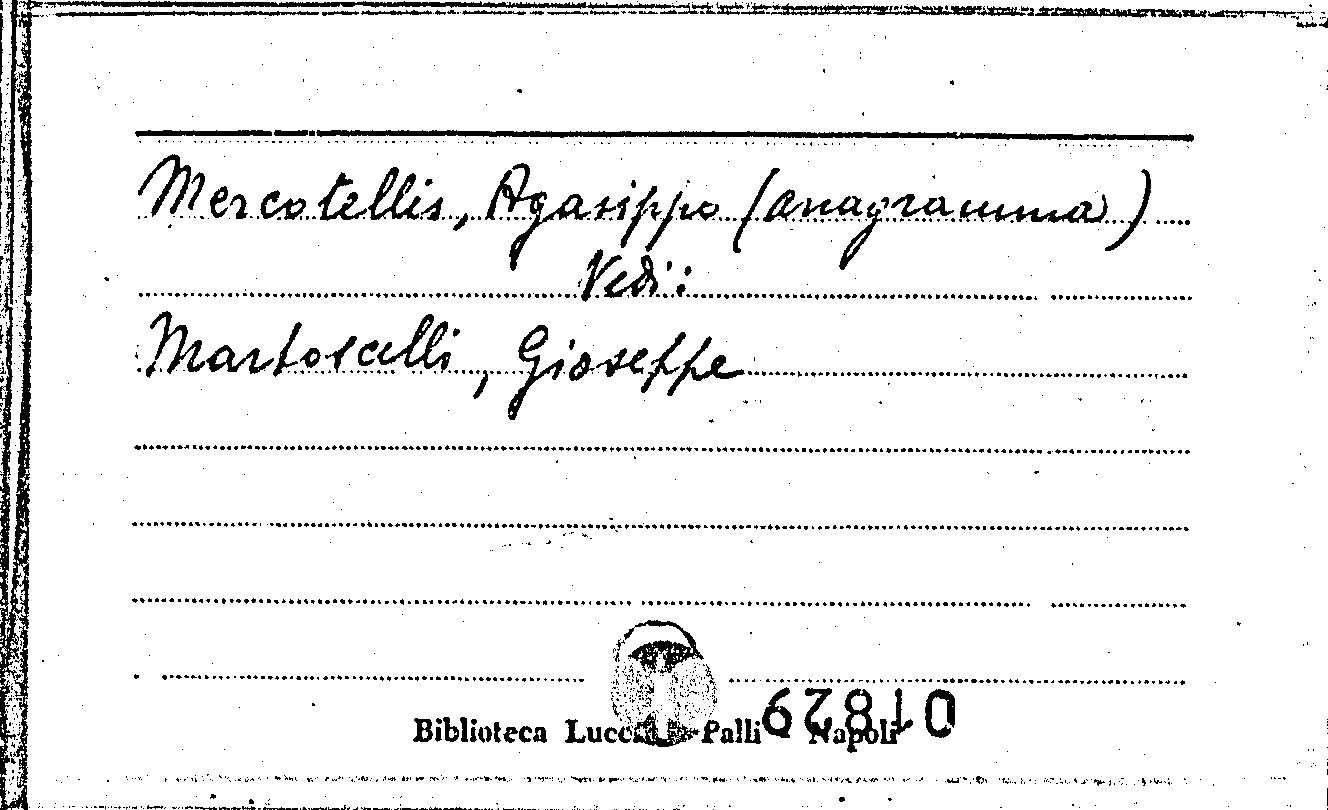 Mercotellis, Agasippo (anagramma)
Vedi:
Martoscelli, Gioseppe
Biblioteca Lucchesi-Palli - Napoli
01829